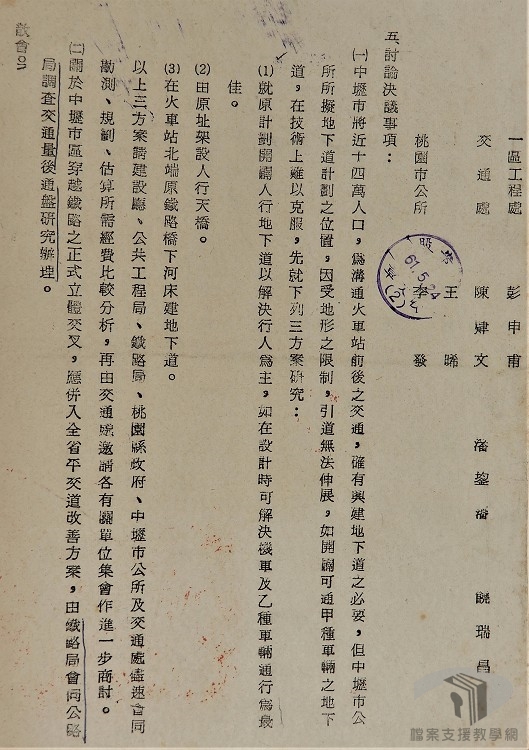 一區工程處　彭申甫
交通處　陳建文　潘鋆潘　饒瑞昌
王晞
桃園市公所　李發
五、討論決議事項：
(一)中壢市將近十四萬人口，為溝通火車站前後之交通，確有興建地下道之必要，但中壢市公
所所擬地下道計劃之位置，因受地形之限制，引道無法伸展，如開闢可通甲種車輛之地下
道，在技術上難以克服，先就下列三方案研究：
(1)就原計劃開闢人行地下道以解決行人為主，如在設計時可解決機車及乙種車輛通行為最
佳。
(2)由原址架設人行天橋。
(3)在火車站北端原鐵路橋下河床建地下道。
以上三方案請建設廳、公共工程局、鐵路局、桃園縣政府、中壢市公所及交通處盡速會同
勘測、規劃、估算所需經費比較分析，再由交通處邀請各有關單位集會作進一步商討。
(二)關於中壢市區穿越鐵路之正式立體交叉，應併入全省平交道改善方案，由鐵路局會同公路
局調查交通量後通盤研究辦理。
61.5.24
(2)
檔案支援教學網